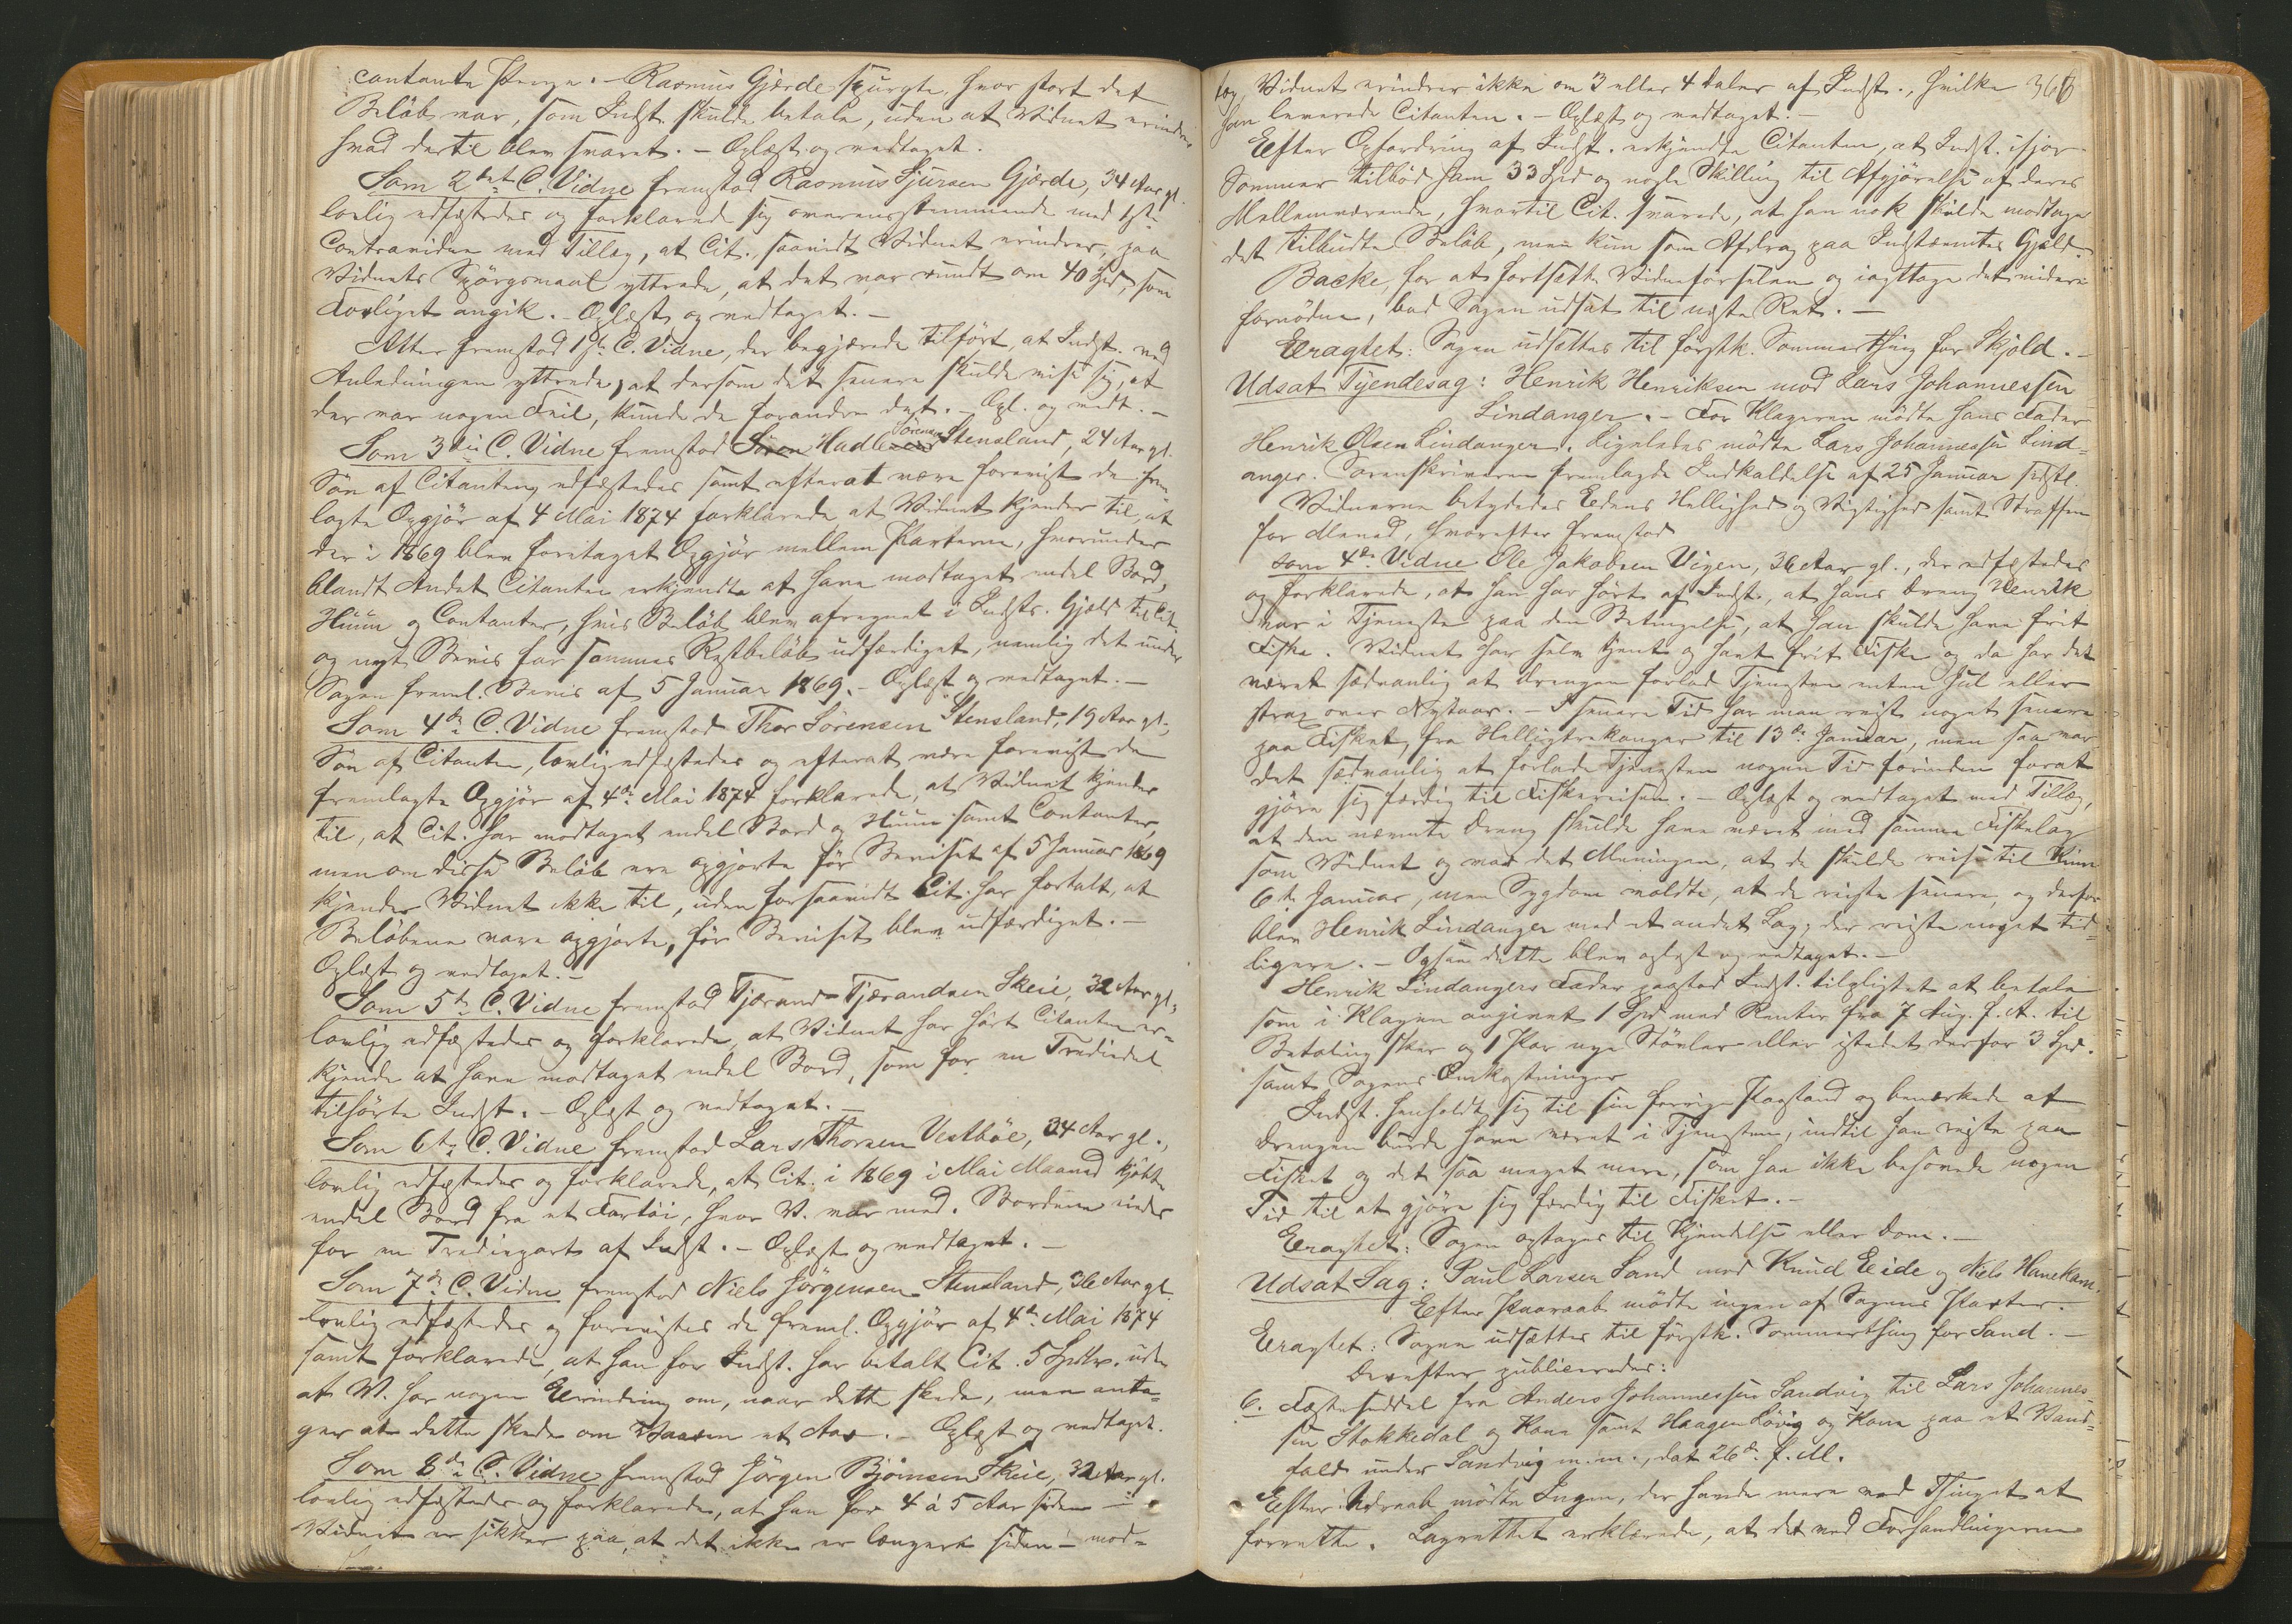 contante Penge. – Rasmus Gjærde spurgte, hvor stort det
Beløb var, som Indst. skulde betale, uden at Vidnet erindrer
hvad dertil blev svaret. – Oplæst og vedtaget.
Som 2det C. Vidne fremstod Rasmus Sjursen Gjærde, 34 Aar gl.
lovlig edfæstedes og forklarede sig overensstemmende med 1ste
Contravidne med Tillæg, at Cit., saavidt Vidnet erindrer, paa
Vidnets Spørgsmaal yttrede, at det var rundt om 40 Spd, som
Forliget angik. – Oplæst og vedtaget. –
Atter fremstod 1ste C. Vidne, der begjærede tilført, at Indst. ved
Anledningen yttrede, at dersom det senere skulde vise sig, at
der var nogen Feil, kunde de forandre det. – Opl. og vedt. –
Som 3die C. Vidne fremstod Hadle Sørensen Stensland, 24 Aar gl.
Søn af Citanten, edfæstedes samt efterat være forevist de frem-
lagte Opgjør af 4 Mai 1874 forklarede at Vidnet kjender til, at
der i 1869 blev foretaget Opgjør mellem Parterne, hvorunder
blandt Andet Citanten erkjendte at have modtaget endel Bord,
Huun og Contanter, hvis Beløb blev afregnet i Indsts. Gjæld til Cit.
og nyt Bevis for sammes Restbeløb udfærdiget, nemlig det under
Sagen freml. Bevis af 5 Januar 1869. – Oplæst og vedtaget. –
Som 4de C. Vidne fremstod Thor Sørensen Stensland, 19 Aar gl.,
Søn af Citanten, lovlig edfæstedes og efterat være forevist de
fremlagte Opgjør af 4de Mai 1874 forklarede, at Vidnet kjender
til, at Cit. har modtaget endel Bord og Huun samt Contanter,
men om disse Beløb ere opgjorte før Beviset af 5 Januar 1869
kjender Vidnet ikke til, uden forsaavidt Cit. har fortalt, at
Beløbene vare opgjorte, før Beviset blev udfærdiget. –
Oplæst og vedtaget. –
Som 5te C. Vidne fremstod Tjærand Tjærandsen Skeie, 32 Aar gl.,
lovlig edfæstedes og forklarede, at Vidnet har hørt Citanten er-
kjende at have modtaget endel Bord, som for en Trediedel
tilhørte Indst. – Oplæst og vedtaget. –
Som 6te C. Vidne fremstod Lars Thorsen Vestbøe, 34 Aar gl.,
lovlig edfæstedes og forklarede, at Cit. i 1869 i Mai Maaned kjøbte
endel Bord fra et Fartøi, hvor V. var med. Bordene eiedes
for en Trediepart af Indst. – Oplæst og vedtaget. –
Som 7de C. Vidne fremstod Niels Jørgensen Stensland, 36 Aar gl.
lovlig edfæstedes og forevistes de freml. Opgjør af 4de Mai 1874
samt forklarede, at han for Indst. har betalt Cit. 5 Spdlr. uden
at V. har nogen Erindring om, naar dette skede, men anta-
ger at dette skede om Vaaren et Aar. – Oplæst og vedtaget.
Som 8de C. Vidne fremstod Jørgen Bjørnsen Skeie, 32 Aar gl.
lovlig edfæstedes og forklarede, at han for 4 à 5 Aar siden –
Vidnet er sikker paa, at det ikke er længere siden – mod-
tog Vidnet erindrer ikke om 3 eller 4 Daler af Indst., hvilke 366
han leverede Citanten. – Oplæst og vedtaget. –
Efter Opfordring af Indst. erkjendte Citanten, at Indst. ifjor
Sommer tilbød ham 33 Spd og nogle Skilling til Afgjørelse af deres
Mellemværende, hvortil Cit. svarede, at han nok skulde modtage
det tilbudte Beløb, men kun som Afdrag paa Indstævntes Gjæld.
Backe, for at fortsætte Vidneførselen og iagttage det videre
fornødne, bad Sagen udsat til næste Ret. –
Eragtet: Sagen udsættes til førstk. Sommerthing for Skjold. –
Udsat Tyendesag: Henrik Henriksen mod Lars Johannessen
Lindanger. – For Klageren mødte hans Fader
Henrik Olsen Lindanger. Ligeledes mødte Lars Johannessen Lind-
anger. Sorenskriveren fremlagde Indkaldelse af 25 Januar sidstl.
Vidnerne betydedes Edens Hellighed og Vigtighed samt Straffen
for Meened, hvorefter fremstod
som 4de Vidne Ole Jakobsen Vigen, 36 Aar gl., der edfæstedes
og forklarede, at han har hørt af Indst., at hans Dreng Henrik
var i Tjeneste paa den Betingelse, at han skulde have frit
Fiske. Vidnet har selv tjent og havt frit Fiske og da har det
været sædvanlig at Drengen forlod Tjenesten enten Jul eller
strax over Nytaar. – I senere Tid har man reist noget senere
paa Fisket, fra Helligtrekonger til 13de Januar, men saa var
det sædvanlig at forlade Tjenesten nogen Tid forinden forat
gjøre sig færdig til Fiskereisen. – Oplæst og vedtaget med Tillæg,
at den nævnte Dreng skulde have været med samme Fiskelag
som Vidnet og var det Meningen, at de skulde reise til Kinn
6te Januar, men Sygdom voldte, at de reiste senere, og derfor
blev Henrik Lindanger med et andet Lag, der reiste noget tid-
ligere. – Ogsaa dette blev oplæst og vedtaget. –
Henrik Lindangers Fader paastod Indst. tilpligtet at betale
som i Klagen angivet 1 Spd med Renter fra 7 Aug. f. A. til
Betaling sker og 1 Par nye Støvler eller istedet derfor 3 Spd.
samt Sagens Omkostninger
Indst. henholdt sig til sin forrige Paastand og bemærkede at
Drengen burde have været i Tjenesten, indtil han reiste paa
Fisket og det saa meget mere, som han ikke behøvede nogen
Tid til at gjøre sig færdig til Fisket. –
Eragtet: Sagen optages til Kjendelse eller Dom. –
Udsat Sag: Paul Larsen Sand mod Knud Eide og Niels Hanekam.
Efter Paaraab mødte ingen af Sagens Parter. –
Eragtet: Sagen udsættes til førstk. Sommerthing for Sand. –
Derefter publiceredes:
6. Fæsteseddel fra Anders Johannessen Sandvig til Lars Johannes-
sen Stokkedal og Kone samt Haagen Løvig og Kone paa et Vand-
fald under Sandvig m. m., dat 26de f. M.
Efter Udraab mødte Ingen, der havde mere ved Thinget at
forrette. Lagrettet erklærede, at det ved Forhandlingerne